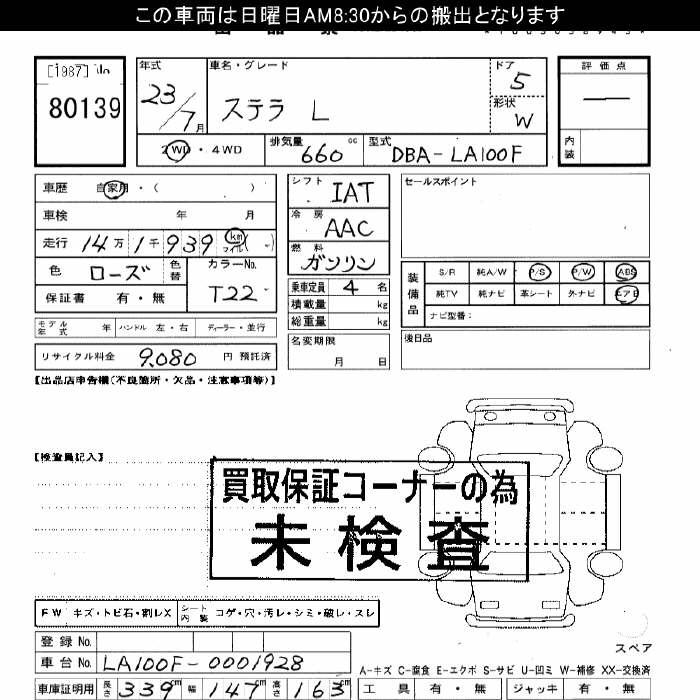 この車両は日曜日AM8:30からの搬出となります
[1987] No
80139
年式
23/7月
車名・グレード
ステラ L
ドア
5
形状
W
評価点
内装
2WD・4WD
排気量
660cc
型式
DBA-LA100F
車歴 自家用・( )
車検 年 月
走行 14万1千939 km マイル( )
色 ローズ 色替
カラーNo.
T22
保証書 有・無
モデル年式 年 ハンドル 左・右 ディーラー・並行
リサイクル料金 9,080 円 預託済
シフト IAT
冷房 AAC
燃料 ガソリン
乗車定員 4 名
積載量 kg
総重量 kg
名変期限
月 日
セールスポイント
装備品
S/R 純A/W P/S P/W ABS
純TV 純ナビ 革シート 外ナビ エアB
ナビ型番:
後日品
【出品店申告欄(不良箇所・欠品・注意事項等)】
【検査員記入】
買取保証コーナーの為
未検査
FW キズ・トビ石・割レX シート内装 コゲ・穴・汚レ・シミ・破レ・スレ
スペア
登録No.
車台No. LA100F-0001928
A-キズ C-腐食 E-エクボ S-サビ U-凹ミ W-補修 XX-交換済
車庫証明用 長さ 339cm 幅 147cm 高さ 163cm
工具 有・無 ジャッキ 有・無